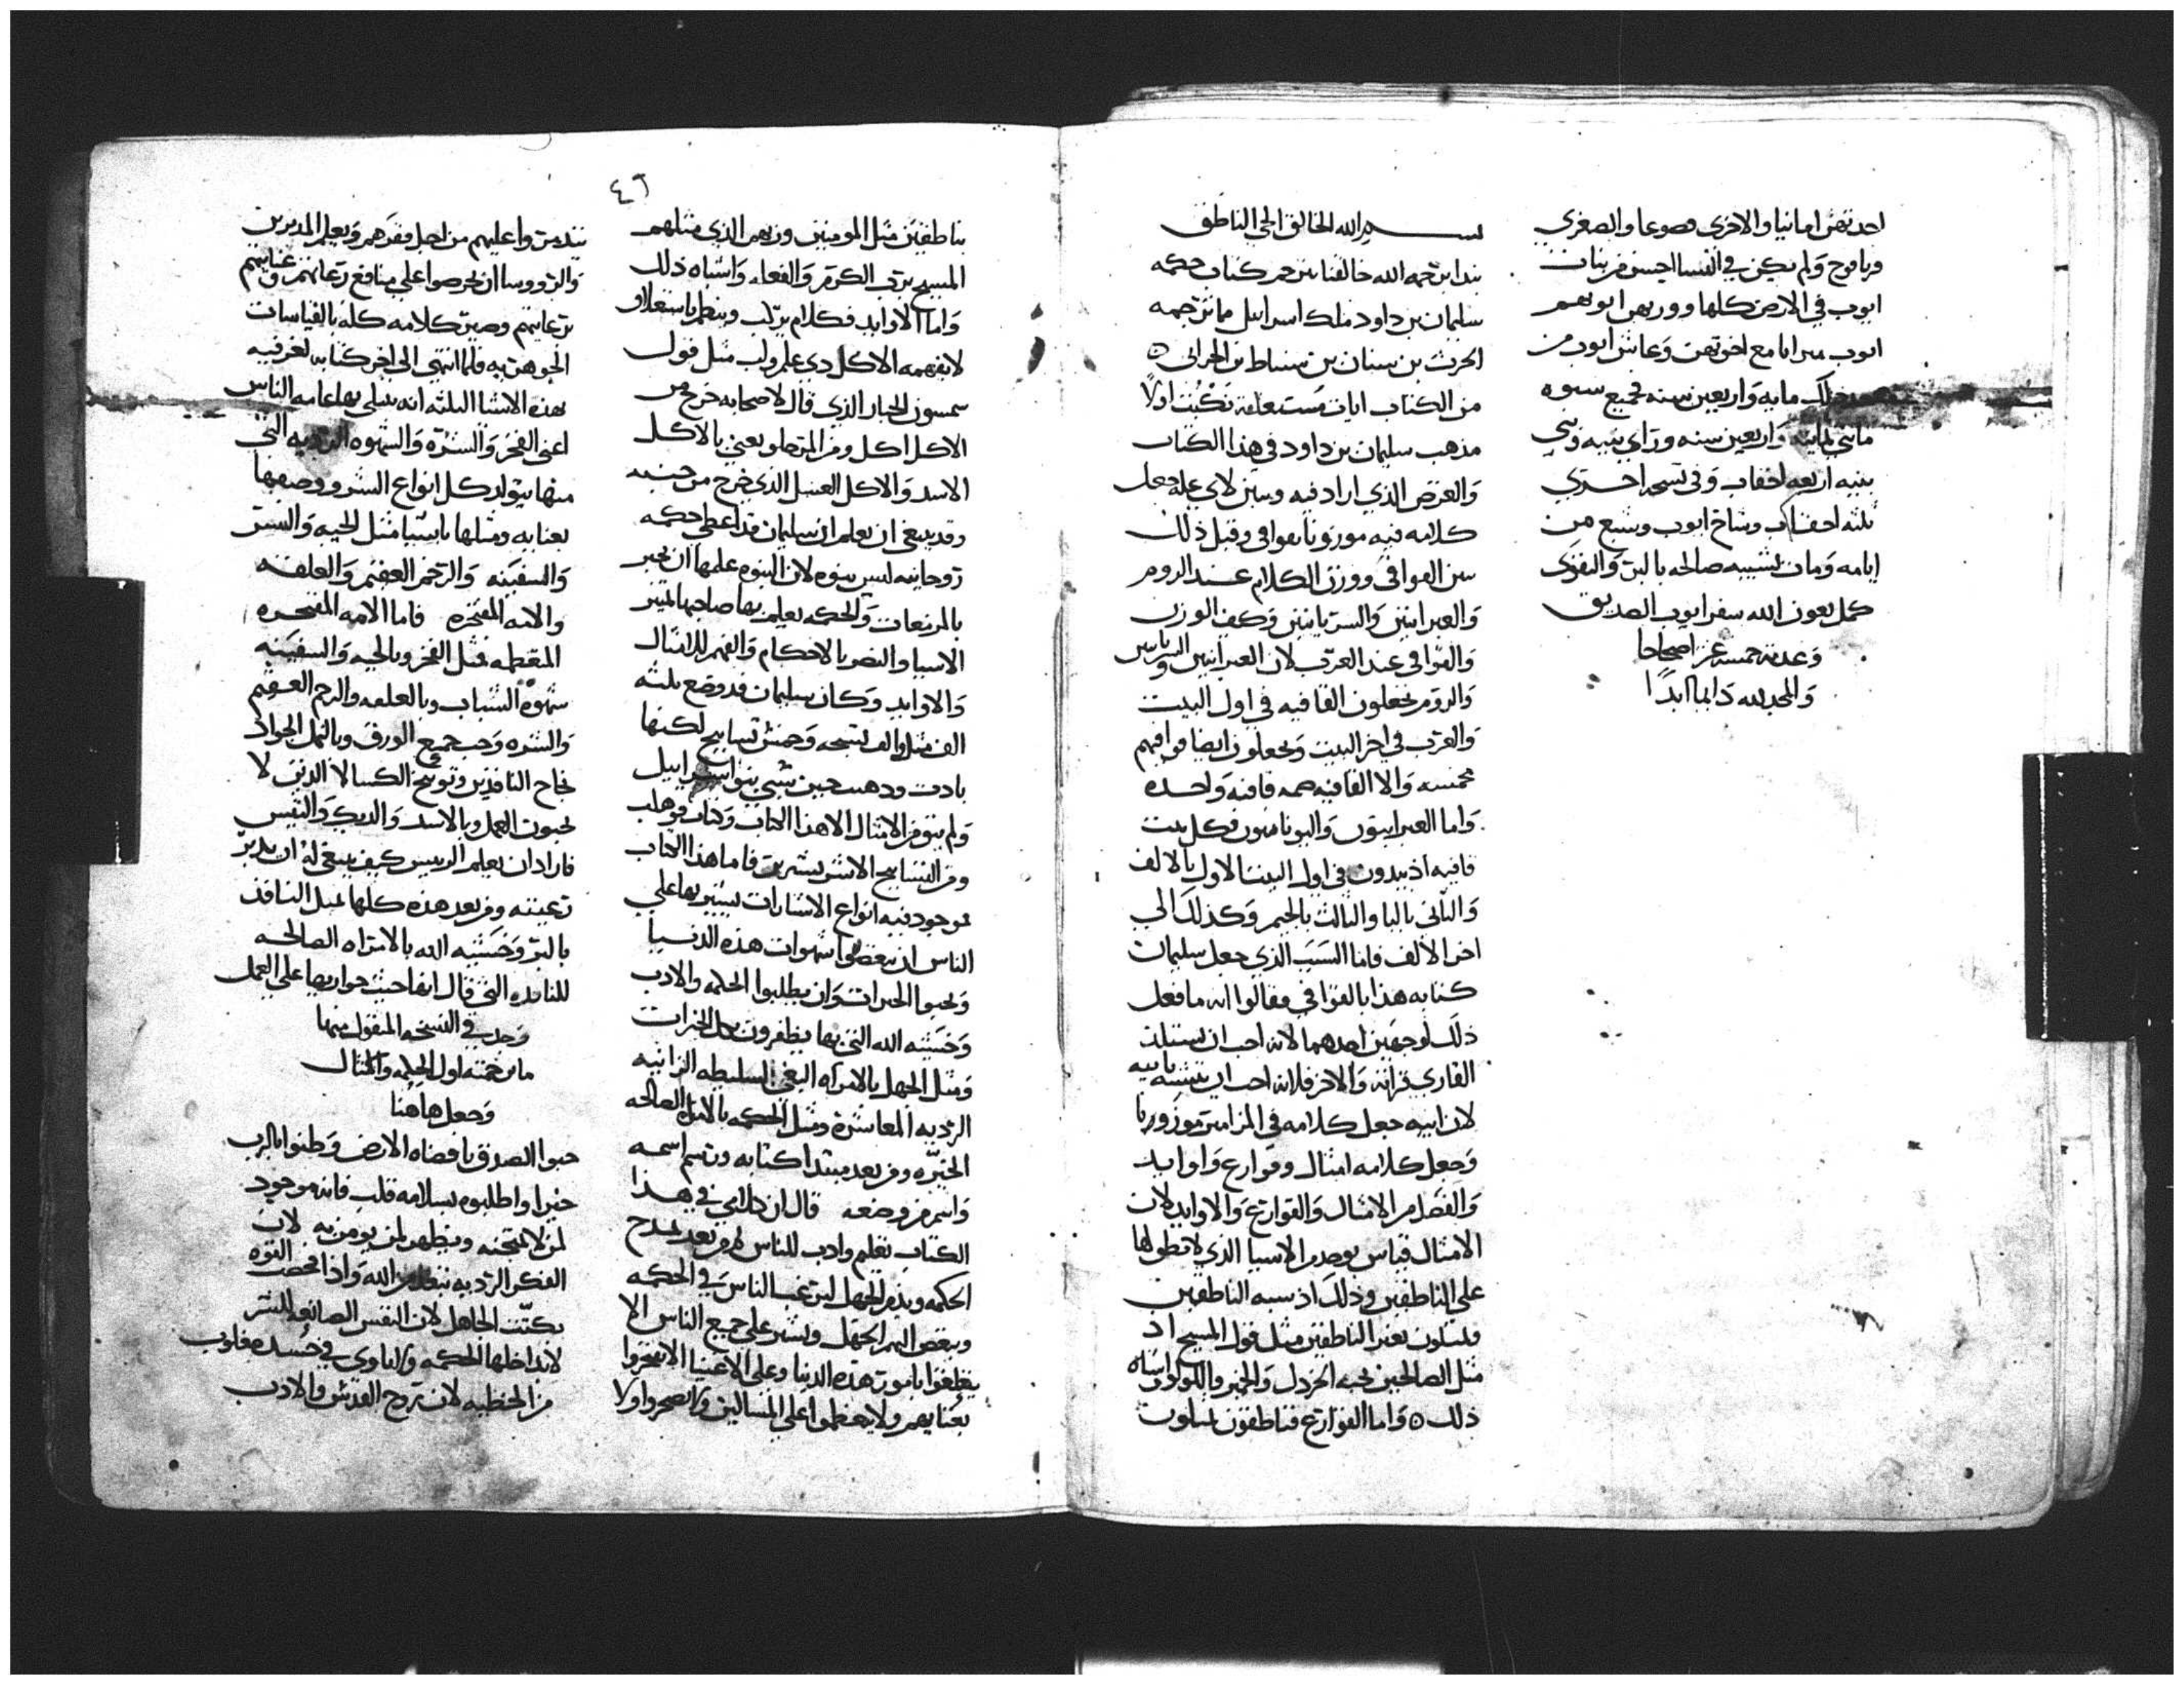 احدتهن امانيا والاخرى قصوعا والصغرى
قرنافوج ولم يكن في النسا احسن من بنات
ايوب في الارض كلها وورثهن ابوهم
ايوب ميراثا مع اخوتهن وعاش ايوب من
بعد ذلك مايه واربعين سنه فجميع سنوه
مايتي ثمانيه واربعين سنه وراي بنيه وبني
بنيه اربعه احقاب وفي نسخه اخري
ثلثه احقاب وشاخ ايوب وشبع من
ايامه ومات بشيبه صالحه بالبر والتقوى
كمل بعون الله سفر ايوب الصديق
وعدته خمسه عشر اصحاحا
والمجد لله دايما ابدا
بسم الله الخالق الحي الناطق
نبدا بترجمه الله خالقنا بترجم كتاب حكمه
سليمان بن داود ملك اسراييل مما ترجمه
الحرث بن سنان بن سنباط الحراني
من الكتاب ايات مستعلمه نكتب اولا
مذهب سليمان بن داود في هذا الكتاب
والغرض الذي اراد فيه ونبين لاي عله جعل
كلامه فيه موزونا بقوافي وقبل ذلك
نبين القوافي ووزن الكلام عند الروم
والعبرانيين والسريانيين وكيف الوزن
والقوافي عند العرب لان العبرانيين والسريانيين
والروم يجعلون القافيه في اول البيت
والعرب في اخر البيت ويجعلون ايضا قوافيهم
مخمسه والا القافيه قافيه واحده
واما العبرانيون واليونانيون فكل بيت
قافيه اذ يبدون في اول البيت الاول بالالف
والثاني بالبا والثالث بالجيم وكذلك الي
اخر الالف فاما السبب الذي جعل سليمان
كتابه هذا بالقوافي فقالوا انه ما فعل
ذلك لوجهين احدهما لانه احب ان يستلذ
القاري قراته والاخر فلانه احب ان يتشبه بابيه
لان ابيه جعل كلامه في المزامير موزونا
وجعل كلامه امثال وقوارع واوابد
والفصل من الامثال والقوارع والاوابد لان
الامثال قياس يوخد من الاشيا الذي لا نطق لها
علي الناطقين وذلك اذ نسبه الناطقين
فيمثلون بغير الناطقين مثل قول المسيح اذ
مثل الصالحين بحبه الخردل والخمير واللولو واشباه
ذلك واما القوارع فناطقون يمثلون
٤٦
بناطقين مثل المومنين وربهم الذي مثلهم
المسيح برب الكرم والفعله واشباه ذلك
واما الاوابد فكلام يركب وينظم باستغلاق
لا يفهمه الا كل ذي علم ولب مثل قول
سمسون الجبار الذي قال لاصحابه خرج من
الاكل اكل ومن المر حلو يعني بالاكل
الاسد والاكل العسل الذي خرج من جنبه
وقد ينبغي ان يعلم ان سليمان قد اعطي حكمه
روحانيه ليس بنبوه لان النبوه علمها ان يخبر
بالمزمعات والحكمه يعلم بها صاحبها تمييز
الاشيا والنصر بالاحكام والفهم للامثال
والاوابد وكان سليمان قد وضع ثلثه
الف مثل والف تسبحه وخمس تسابيح لكنها
بادت وذهبت حين سبي بنو اسراييل
ولم يبق من الامثال الا هذا الكتاب وكتاب قوهلت
ومن التسابيح الا شيريشرين فاما هذا الكتاب
فموجود فيه انواع الاشارات يشير بها علي
الناس ان يبغضوا شهوات هذه الدنيا
ويحبوا الخيرات وان يطلبوا الحكمه والادب
وخشيه الله التي بها يظفرون بكل الخيرات
ومثل الجهل بالامراه البغي السليطه الزانيه
الرديه المعاشره ومثل الحكمه بالامراه الصالحه
الخيره ومن بعد مبتدا كتابه ورسم اسمه
واسم من وضعه قال ان كلامي في هذا
الكتاب تعليم وادب للناس ثم من بعد يمدح
الحكمه ويذم الجهل ليرغب الناس في الحكمه
ويبغض اليهم الجهل ويشير علي جميع الناس الا
يغلقوا بامور هذه الدنيا وعلي الاغنيا الا يفتخروا
بغنايهم ولا يتعظموا علي المساكين ولا يضجروا ولا
يتذمروا عليهم من اجل فقرهم ويعلم المدبرين
والرووسا ان يحرصوا علي منافع رعاتهم وغنايهم
برعايتهم وصير كلامه كله بالقياسات
الجوهريه فلما انتهي الي اخر كتابه لغرفيه
بهذه الاشيا الثلثه انه يبتلي بها عامه الناس
اعني الفخر والشره والشهوه الرديه التي
منها يتولد كل انواع الشرور ووصفها
بعنايه ومثلها باشيا مثل الحيه والنسر
والسفينه والرحم العقيم والعلقه
والامه المفتخره فاما الامه المفتخره
المقطمه فمثل الفخر وبالحيه والسفينه
شهوه الشباب وبالعلقه والرحم العقيم
والشره وحب جميع الورق وبالنمل الجواد
نجاح النافدين وتوبيخ الكسالا الذين لا
يحبون العمل وبالاسد والديك والتيس
فاراد ان يعلم الرييس كيف ينبغي له ان يدبر
رعيته ومن بعد هذه كلها يمثل النافذ
بالبر وخشيه الله بالامراه الصالحه
للنافده التي قال انها حيث جوارها علي العمل
وجد في النسخه المنقول منها
ما ترجمته اول الحكمه والامثال
وجعل هاهنا
حبوا الصدق يا قضاه الارض وظنوا بالرب
خيرا واطلبوه بسلامه قلب فانه موجود
لمن لا يمتحنه ويظهر لمن يومن به لان
الفكر الرديه تبعد من الله واذا فحصت القوه
بكتت الجاهل لان النفس الصانعه للشر
لا تداخلها الحكمه ولا تاوي في جسد مغلوب
من الخطيه لان روح القدس والادب